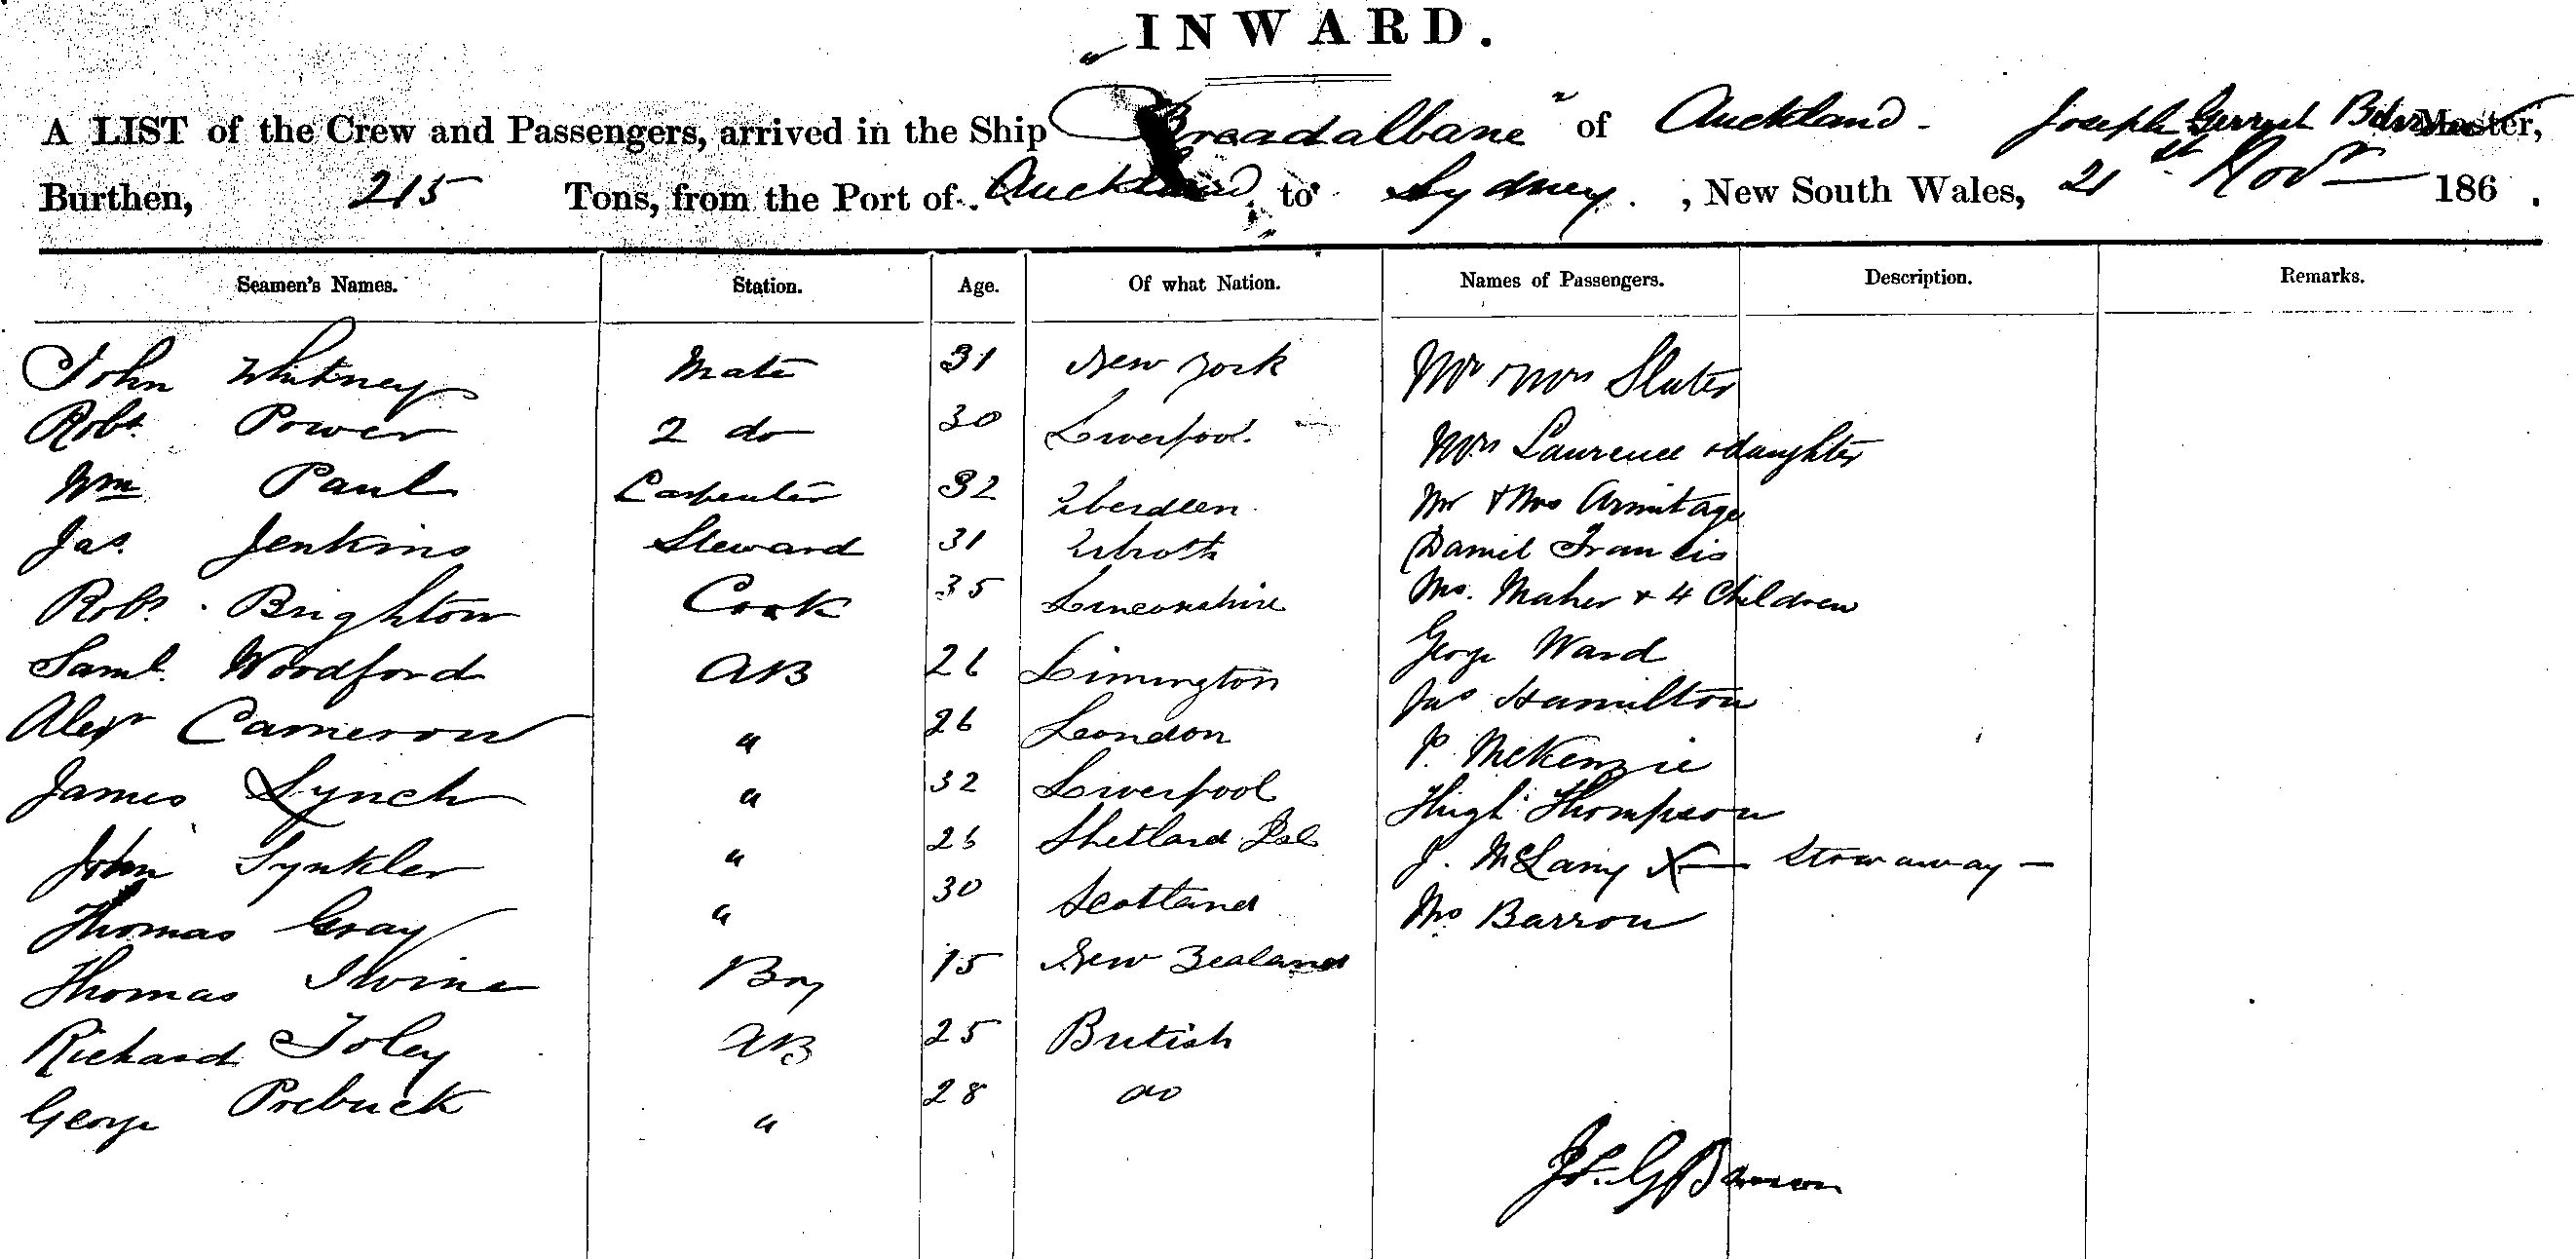 INWARD.
A LIST of the Crew and Passengers, arrived in the Ship "Breadalbane" of Auckland - Joseph Master,
Burthen, 215 Tons, from the Port of Auckland to Sydney, New South Wales, 21st Novr 186 .
Seamen's Names. Station. Age. Of what Nation. Names of Passengers. Description. Remarks.
John Whitney Mate 31 New York Mr & Mrs Slater
Robt. Power 2 do 30 Liverpool. Mrs Laurence & daughter
Wm Paul Carpenter 32 Aberdeen Mr & Mrs Armitage
Jas. Jenkins Steward 31 Daniel Francis
Robt. Brighton Cook 35 Mrs. Maher & 4 Children
Saml. Woodford AB 26 Limington George Ward
Alexr Cameron " 26 London Jas Hamilton
James Lynch " 32 Liverpool P. McKenzie
John " Shetland Isl Hugh Thompson
Thomas Gray " 30 Scotland J. X Stowaway -
Thomas Irvine Boy 15 New Zealand Mrs Barron
Richard Foley AB 25 British
George Prebuck " 28 do
Js. G Barron